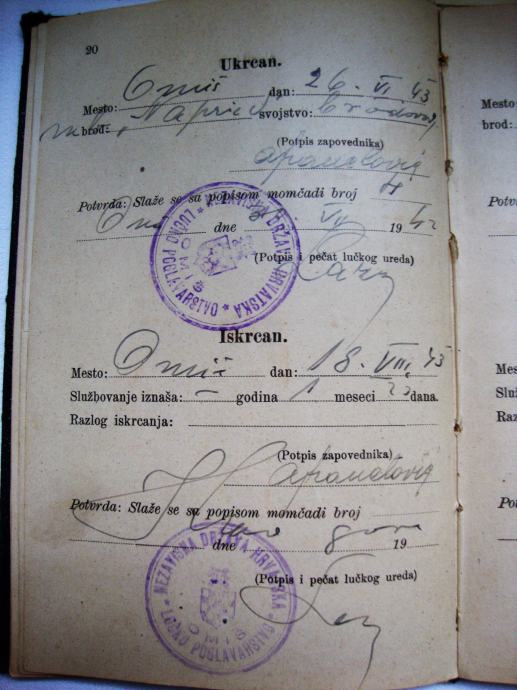 20
Ukrcan.
Mesto: Omiš dan: 26. VI 43
brod: „Napried" svojstvo:
(Potpis zapovednika)
Potvrda: Slaže se sa popisom momčadi broj 4
dne VII 19
(Potpis i pečat lučkog ureda)
NEZAVISNA DRŽAVA HRVATSKA * LUČKO POGLAVARSTVO * OMIŠ
Iskrcan.
Mesto: Omiš dan: 18. VIII. 43
Službovanje iznaša: – godina 1 meseci 23 dana.
Razlog iskrcanja:
(Potpis zapovednika)
Potvrda: Slaže se sa popisom momčadi broj
dne gore 19
(Potpis i pečat lučkog ureda)
NEZAVISNA DRŽAVA HRVATSKA * LUČKO POGLAVARSTVO * OMIŠ
Mesto:
brod:
Potv
Mes
Služ
Raz
Po